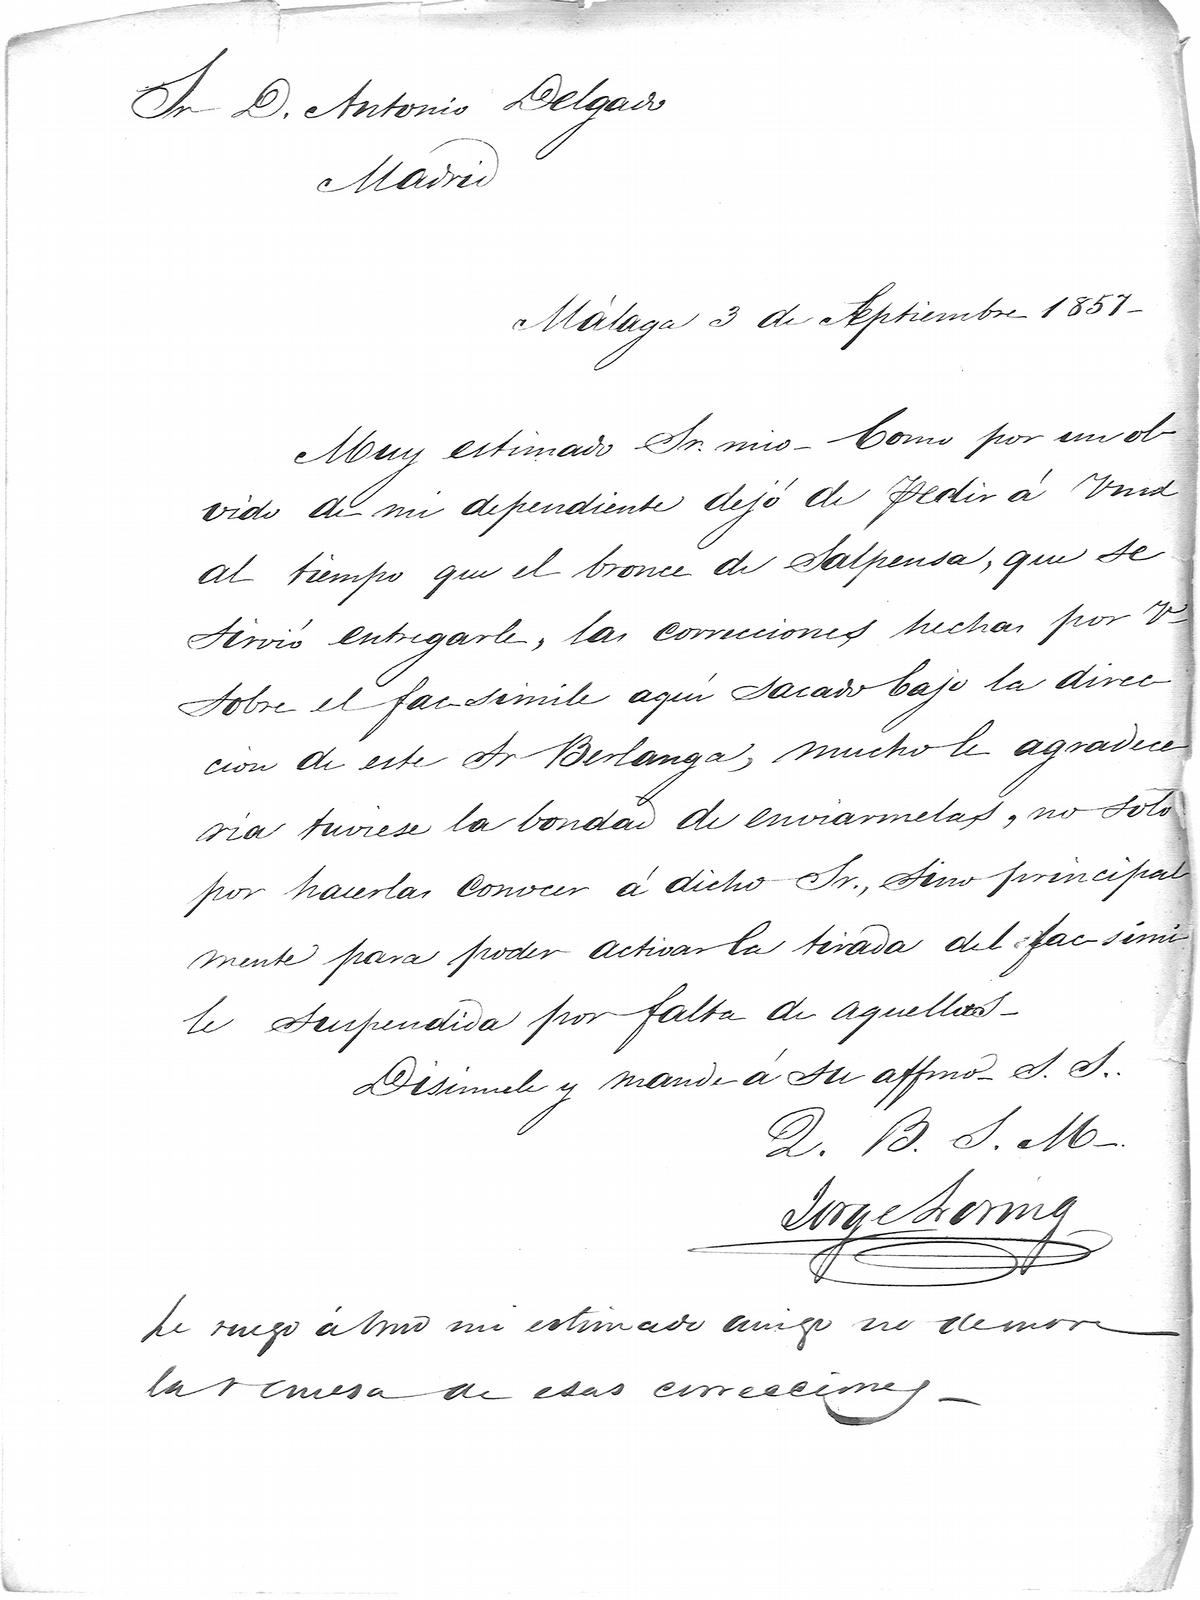 Sr D. Antonio Delgado
Madrid
Málaga 3 de Septiembre 1857-
Muy estimado Sr. mio- Como por un ol
vido de mi dependiente dejó de pedir á Vmd
al tiempo que el bronce de Salpensa, que se
sirvió entregarle, las correcciones hechas por V
sobre el fac-simile aquí sacado bajo la direc
cion de este Sr Berlanga, mucho le agradece
ria tuviese la bondad de enviarmelas, no solo
por hacerlas conocer á dicho Sr., sino principal
mente para poder activar la tirada del fac-simi
le suspendida por falta de aquellas-
Disimule y mande á su affmo- S. S..
Q. B. S. M-.
Jorge Loring
Le ruego á Vmd mi estimado amigo no demore
la remesa de esas correcciones-